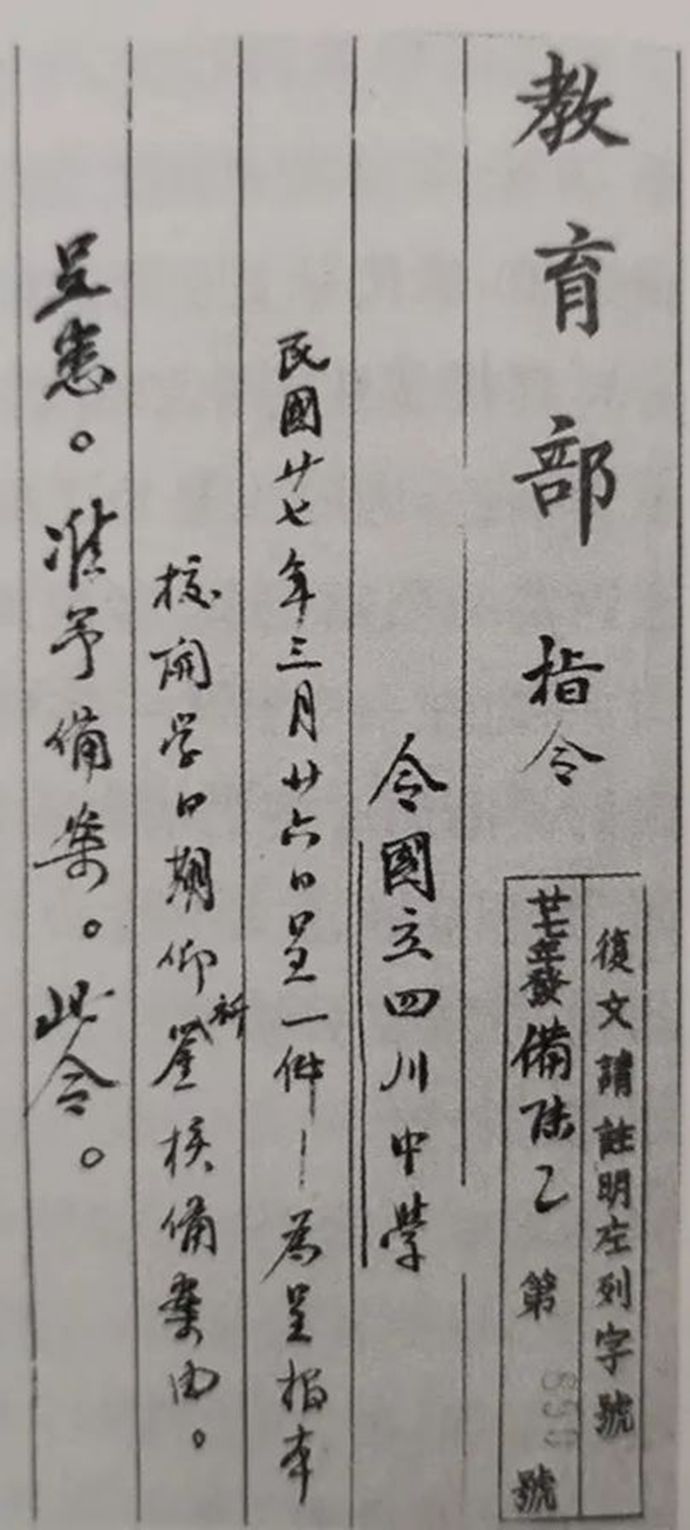 教育部 指令
復文請註明左列字號
廿七年發 備陸乙 第 號
令國立四川中學
民國廿七年三月廿六日呈一件－為呈報本
校開學日期仰祈鑒核備案由。
呈悉。准予備案。此令。